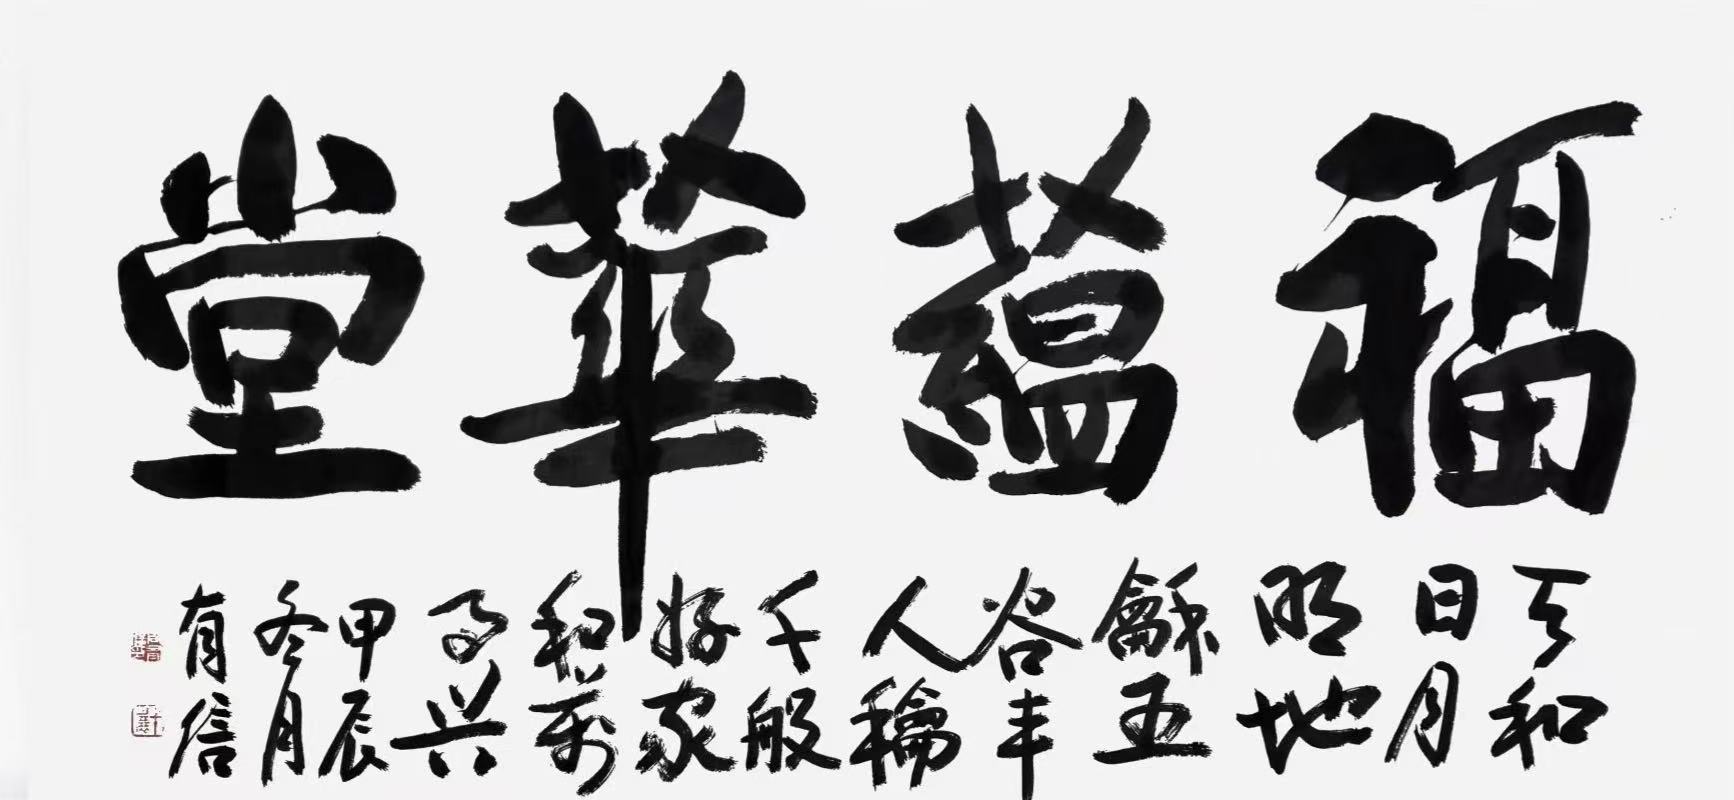 福蘊華堂
天和
日月
明地
龢五
谷丰
人龢
千般
好家
和萬
事兴
甲辰
冬月
有信